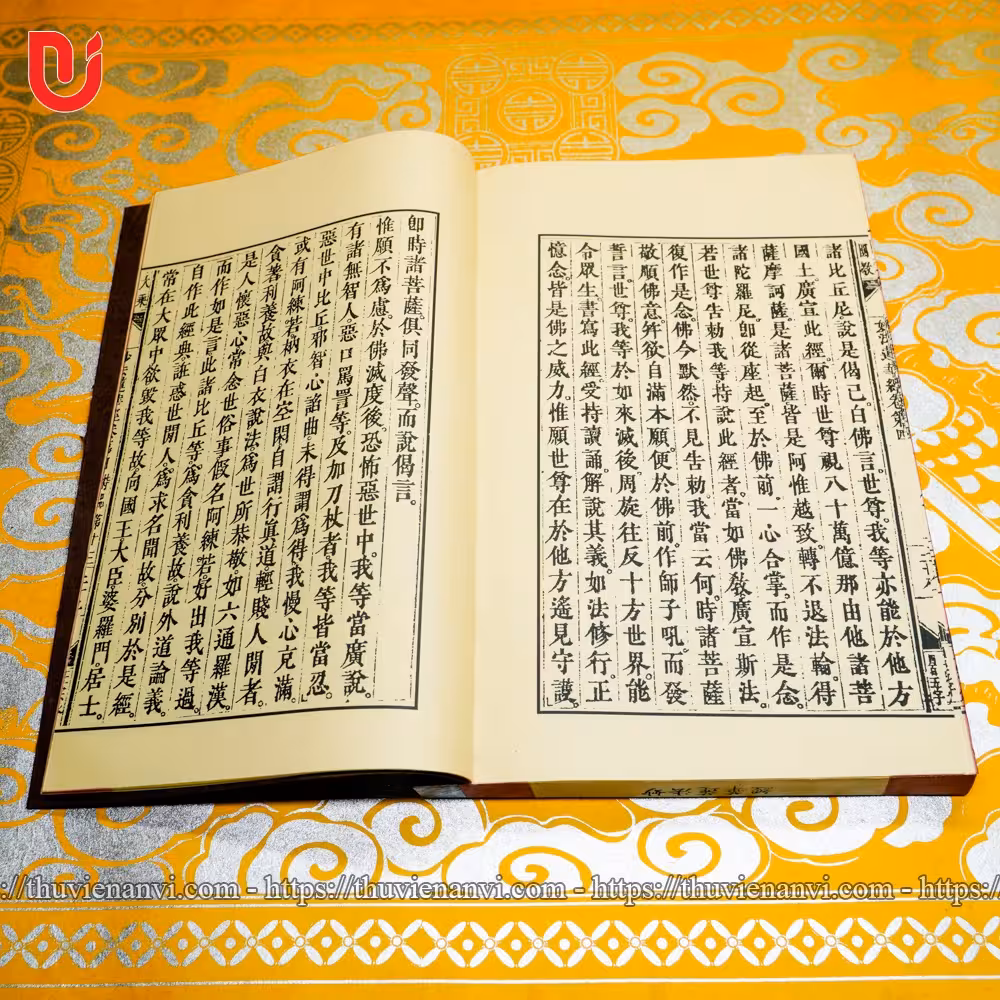 妙法蓮華經卷第四
諸比丘尼說是偈已。白佛言。世尊。我等亦能於他方
國土。廣宣此經。爾時世尊。視八十萬億那由他諸菩
薩摩訶薩。是諸菩薩。皆是阿惟越致。轉不退法輪。得
諸陀羅尼。即從座起。至於佛前。一心合掌。而作是念。
若世尊告勅我等。持說此經者。當如佛教。廣宣斯法。
復作是念。佛今默然。不見告勅。我當云何。時諸菩薩
敬順佛意。并欲自滿本願。便於佛前。作師子吼。而發
誓言。世尊。我等於如來滅後。周旋往反十方世界。能
令眾生書寫此經。受持讀誦。解說其義。如法修行。正
憶念。皆是佛之威力。惟願世尊。在於他方。遙見守護。
即時諸菩薩。俱同發聲。而說偈言。
惟願不為慮。於佛滅度後。恐怖惡世中。我等當廣說。
有諸無智人。惡口罵詈等。及加刀杖者。我等皆當忍。
惡世中比丘。邪智心諂曲。未得謂為得。我慢心充滿。
或有阿練若。衲衣在空閑。自謂行真道。輕賤人間者。
貪著利養故。與白衣說法。為世所恭敬。如六通羅漢。
是人懷惡心。常念世俗事。假名阿練若。好出我等過。
而作如是言。此諸比丘等。為貪利養故。說外道論義。
自作此經典。誑惑世間人。為求名聞故。分別於是經。
常在大眾中。欲毀我等故。向國王大臣。婆羅門居士。
妙法蓮華經
://thuvienanvi.com - https://thuvienanvi.com - https://thuvienanvi.com - https://thuvienanvi.com - h